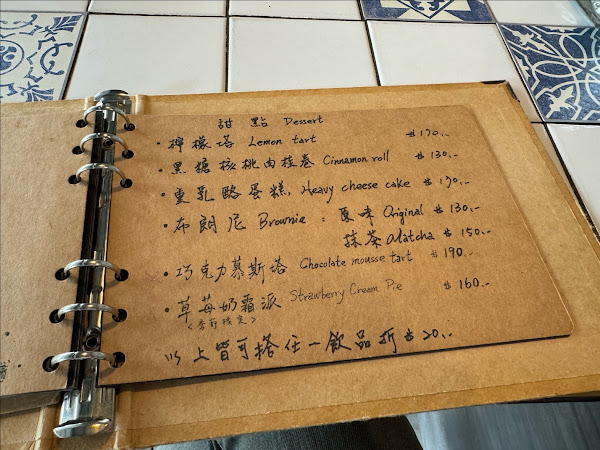 甜點 Dessert
・檸檬塔 Lemon tart $170.-
・黑糖核桃肉桂卷 Cinnamon roll $130.-
・重乳酪蛋糕, Heavy cheese cake $170.-
・布朗尼 Brownie : 原味 Original $130.-
抹茶 Matcha $150.-
・巧克力慕斯塔 Chocolate mousse tart $190.-
・草莓奶霜派 Strawberry Cream Pie $160.-
<季節限定>
以上皆可搭任一飲品折$20.-